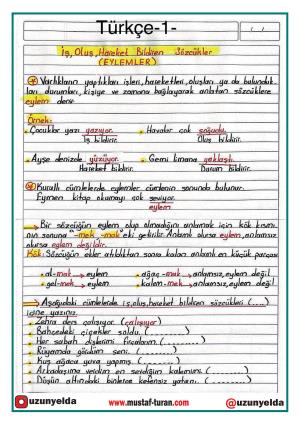 Türkçe-1-
İş, Oluş, Hareket Bildiren Sözcükler
(EYLEMLER)
Varlıkların yaptıkları işleri, hareketleri, oluşları ya da bulunduk-
ları durumları, kişiye ve zamana bağlayarak anlatan sözcüklere
eylem denir.
Örnek:
Çocuklar yazı yazıyor. Havalar çok soğudu.
İş bildirir. Oluş bildirir.
Ayşe denizde yüzüyor. Gemi limana yaklaştı.
Hareket bildirir. Durum bildirir.
Kurallı cümlelerde eylemler cümlenin sonunda bulunur.
Eymen kitap okumayı çok seviyor.
eylem
Bir sözcüğün eylem olup olmadığını anlamak için kök kısmı-
nın sonuna "-mek, -mak" eki getirilir. Anlamlı olursa eylem, anlamsız
olursa eylem değildir.
Kök: Sözcüğün ekler atıldıktan sonra kalan anlamlı en küçük parçası
al-mak → eylem ağaç-mak → anlamsız, eylem değil
gel-mek → eylem kalem-mek → anlamsız, eylem değil
Aşağıdaki cümlelerde iş, oluş, hareket bildiren sözcükleri (....)
içine yazınız.
Zehra ders çalışıyor. (çalışıyor)
Bahçedeki çiçekler soldu. (
Her sabah dişlerimi fırçalarım. (
Rüyamda gördüm seni. (
Kuş ağaca yuva yapmış. (
Arkadaşıma verdim en sevdiğim kalemimi. (
Düşün altındaki binlerce kefensiz yatanı. (
uzunyelda www.mustaf-turan.com @uzunyelda